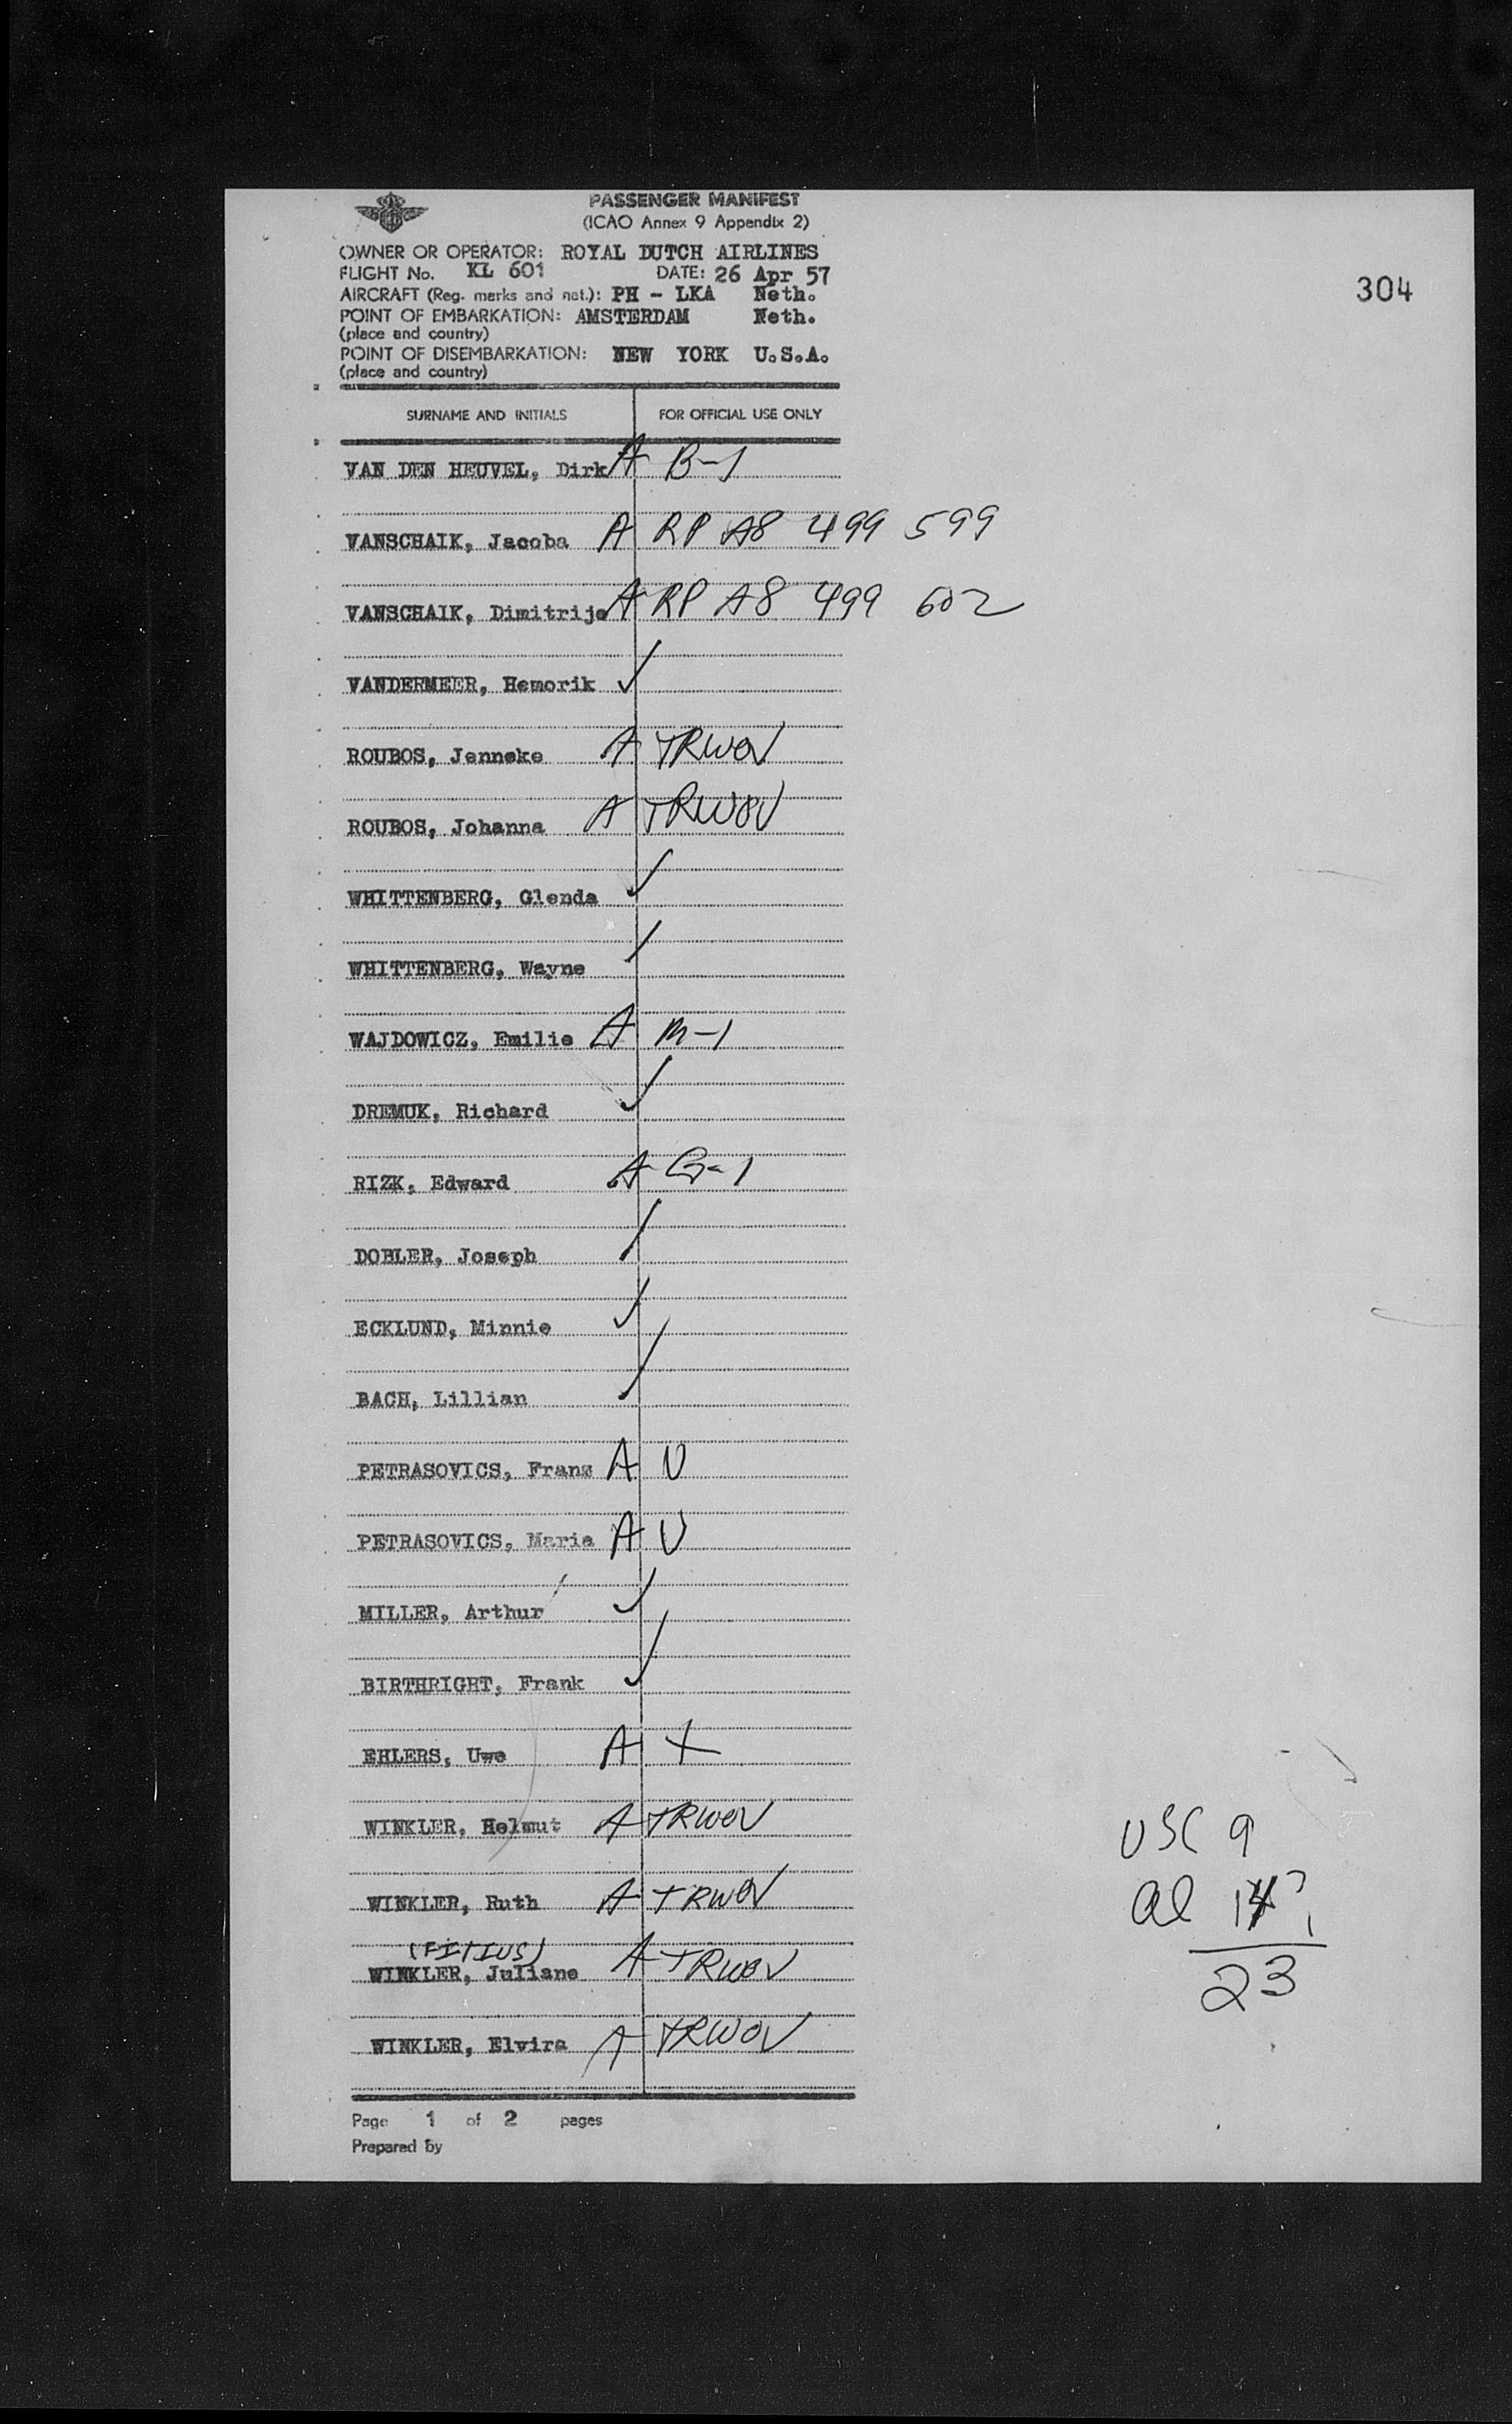 PASSENGER MANIFEST
(ICAO Annex 9 Appendix 2)
OWNER OR OPERATOR: ROYAL DUTCH AIRLINES
FLIGHT No. KL 601 DATE: 26 Apr 57
304
AIRCRAFT (Reg. marks and nat.): PH - LKA Neth.
POINT OF EMBARKATION: AMSTERDAM Neth.
(place and country)
POINT OF DISEMBARKATION: NEW YORK U.S.A.
(place and country)
SURNAME AND INITIALS FOR OFFICIAL USE ONLY
VAN DEN HEUVEL, Dirk A B-1
VANSCHAIK, Jacoba A RP A8 499 599
VANSCHAIK, Dimitrije A RP A8 499 602
VANDERMEER, Hemorik ✓
ROUBOS, Jenneke A TRWOV
ROUBOS, Johanna A TRWOV
WHITTENBERG, Glenda ✓
WHITTENBERG, Wayne /
WAJDOWICZ, Emilie A M-1
DREMUK, Richard ✓
RIZK, Edward A G-1
DOBLER, Joseph /
ECKLUND, Minnie ✓
BACH, Lillian ✓
PETRASOVICS, Franz A V
PETRASOVICS, Maria A V
MILLER, Arthur ✓
BIRTHRIGHT, Frank ✓
EHLERS, Uwe A X
WINKLER, Helmut A TRWOV
WINKLER, Ruth A TRWOV
(FILIUS)
WINKLER, Juliane A TRWOV
WINKLER, Elvira A TRWOV
USC 9
al 14
23
Page 1 of 2 pages
Prepared by